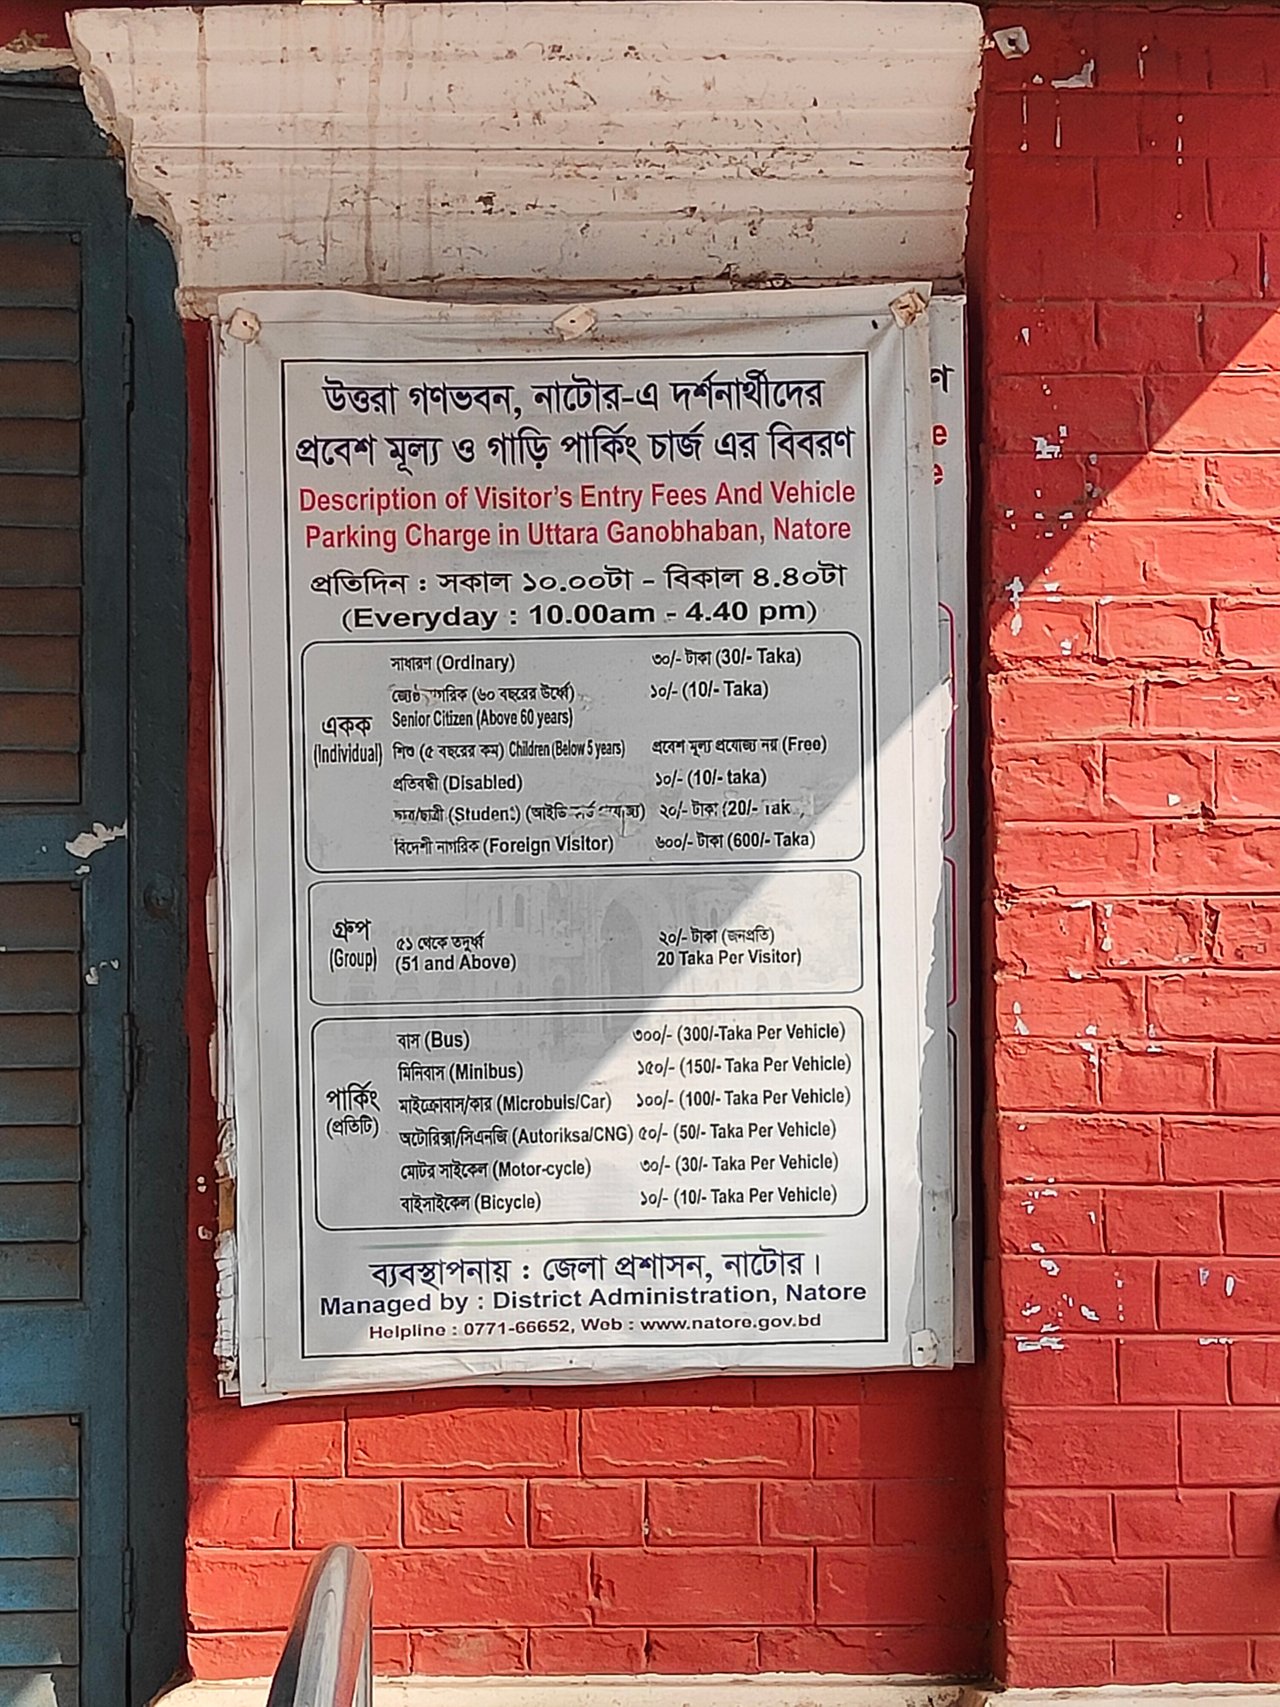 উত্তরা গণভবন, নাটোর-এ দর্শনার্থীদের
প্রবেশ মূল্য ও গাড়ি পার্কিং চার্জ এর বিবরণ
Description of Visitor's Entry Fees And Vehicle
Parking Charge in Uttara Ganobhaban, Natore
প্রতিদিন : সকাল ১০.০০টা - বিকাল ৪.৪০টা
(Everyday : 10.00am - 4.40 pm)
একক
(Individual)
সাধারণ (Ordinary) ৩০/- টাকা (30/- Taka)
(৬০ বছরের উর্ধ্বে) ১০/- (10/- Taka)
Senior Citizen (Above 60 years)
শিশু (৫ বছরের কম) Children (Below 5 years) প্রবেশ মূল্য প্রযোজ্য নয় (Free)
প্রতিবন্ধী (Disabled) ১০/- (10/- taka)
(Student) ২০/- টাকা (20/-
বিদেশী নাগরিক (Foreign Visitor) ৬০০/- টাকা (600/- Taka)
গ্রুপ
(Group)
৫১ থেকে তদূর্ধ্ব ২০/- টাকা (জনপ্রতি)
(51 and Above) 20 Taka Per Visitor)
পার্কিং
(প্রতিটি)
বাস (Bus) ৩০০/- (300/-Taka Per Vehicle)
মিনিবাস (Minibus) ১৫০/- (150/- Taka Per Vehicle)
মাইক্রোবাস/কার (Microbuls/Car) ১০০/- (100/- Taka Per Vehicle)
অটোরিক্সা/সিএনজি (Autoriksa/CNG) ৫০/- (50/- Taka Per Vehicle)
মোটর সাইকেল (Motor-cycle) ৩০/- (30/- Taka Per Vehicle)
বাইসাইকেল (Bicycle) ১০/- (10/- Taka Per Vehicle)
ব্যবস্থাপনায় : জেলা প্রশাসন, নাটোর।
Managed by : District Administration, Natore
Helpline : 0771-66652, Web : www.natore.gov.bd